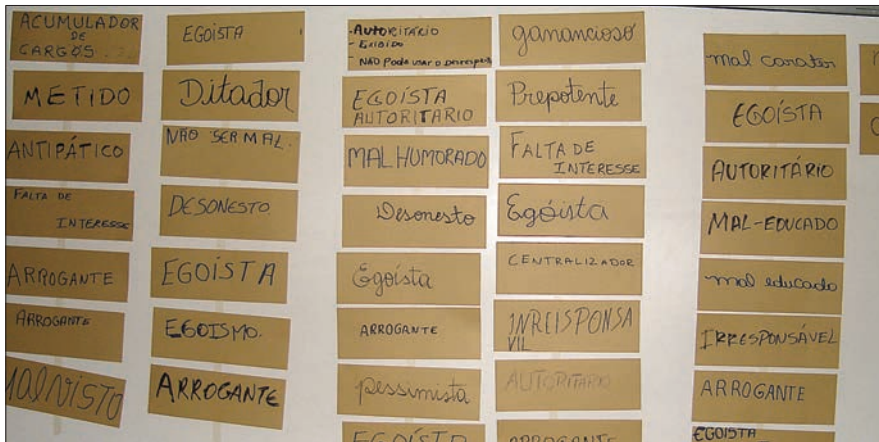 ACUMULADOR
DE
CARGOS...
METIDO
ANTIPÁTICO
FALTA DE
INTERESSE
ARROGANTE
ARROGANTE
MALVISTO
EGOÍSTA
Ditador
NÃO SER MAL.
DESONESTO.
EGOÍSTA
EGOISMO.
ARROGANTE
- AUTORITÁRIO
- EXIBIDO
- NÃO Pode usar o
EGOÍSTA
AUTORITARIO
MAL HUMORADO
Desonesto
Egoísta
ARROGANTE
pessimista
EGOÍSTO
ganancioso
Prepotente
FALTA DE
INTERESSE
Egoísta
CENTRALIZADOR
INREISPONSA
VIL
AUTORITARIO
ARROGANTE
mal carater
EGOÍSTA
AUTORITÁRIO
MAL-EDUCADO
mal educado
IRRESPONSÁVEL
ARROGANTE
EGOISTA